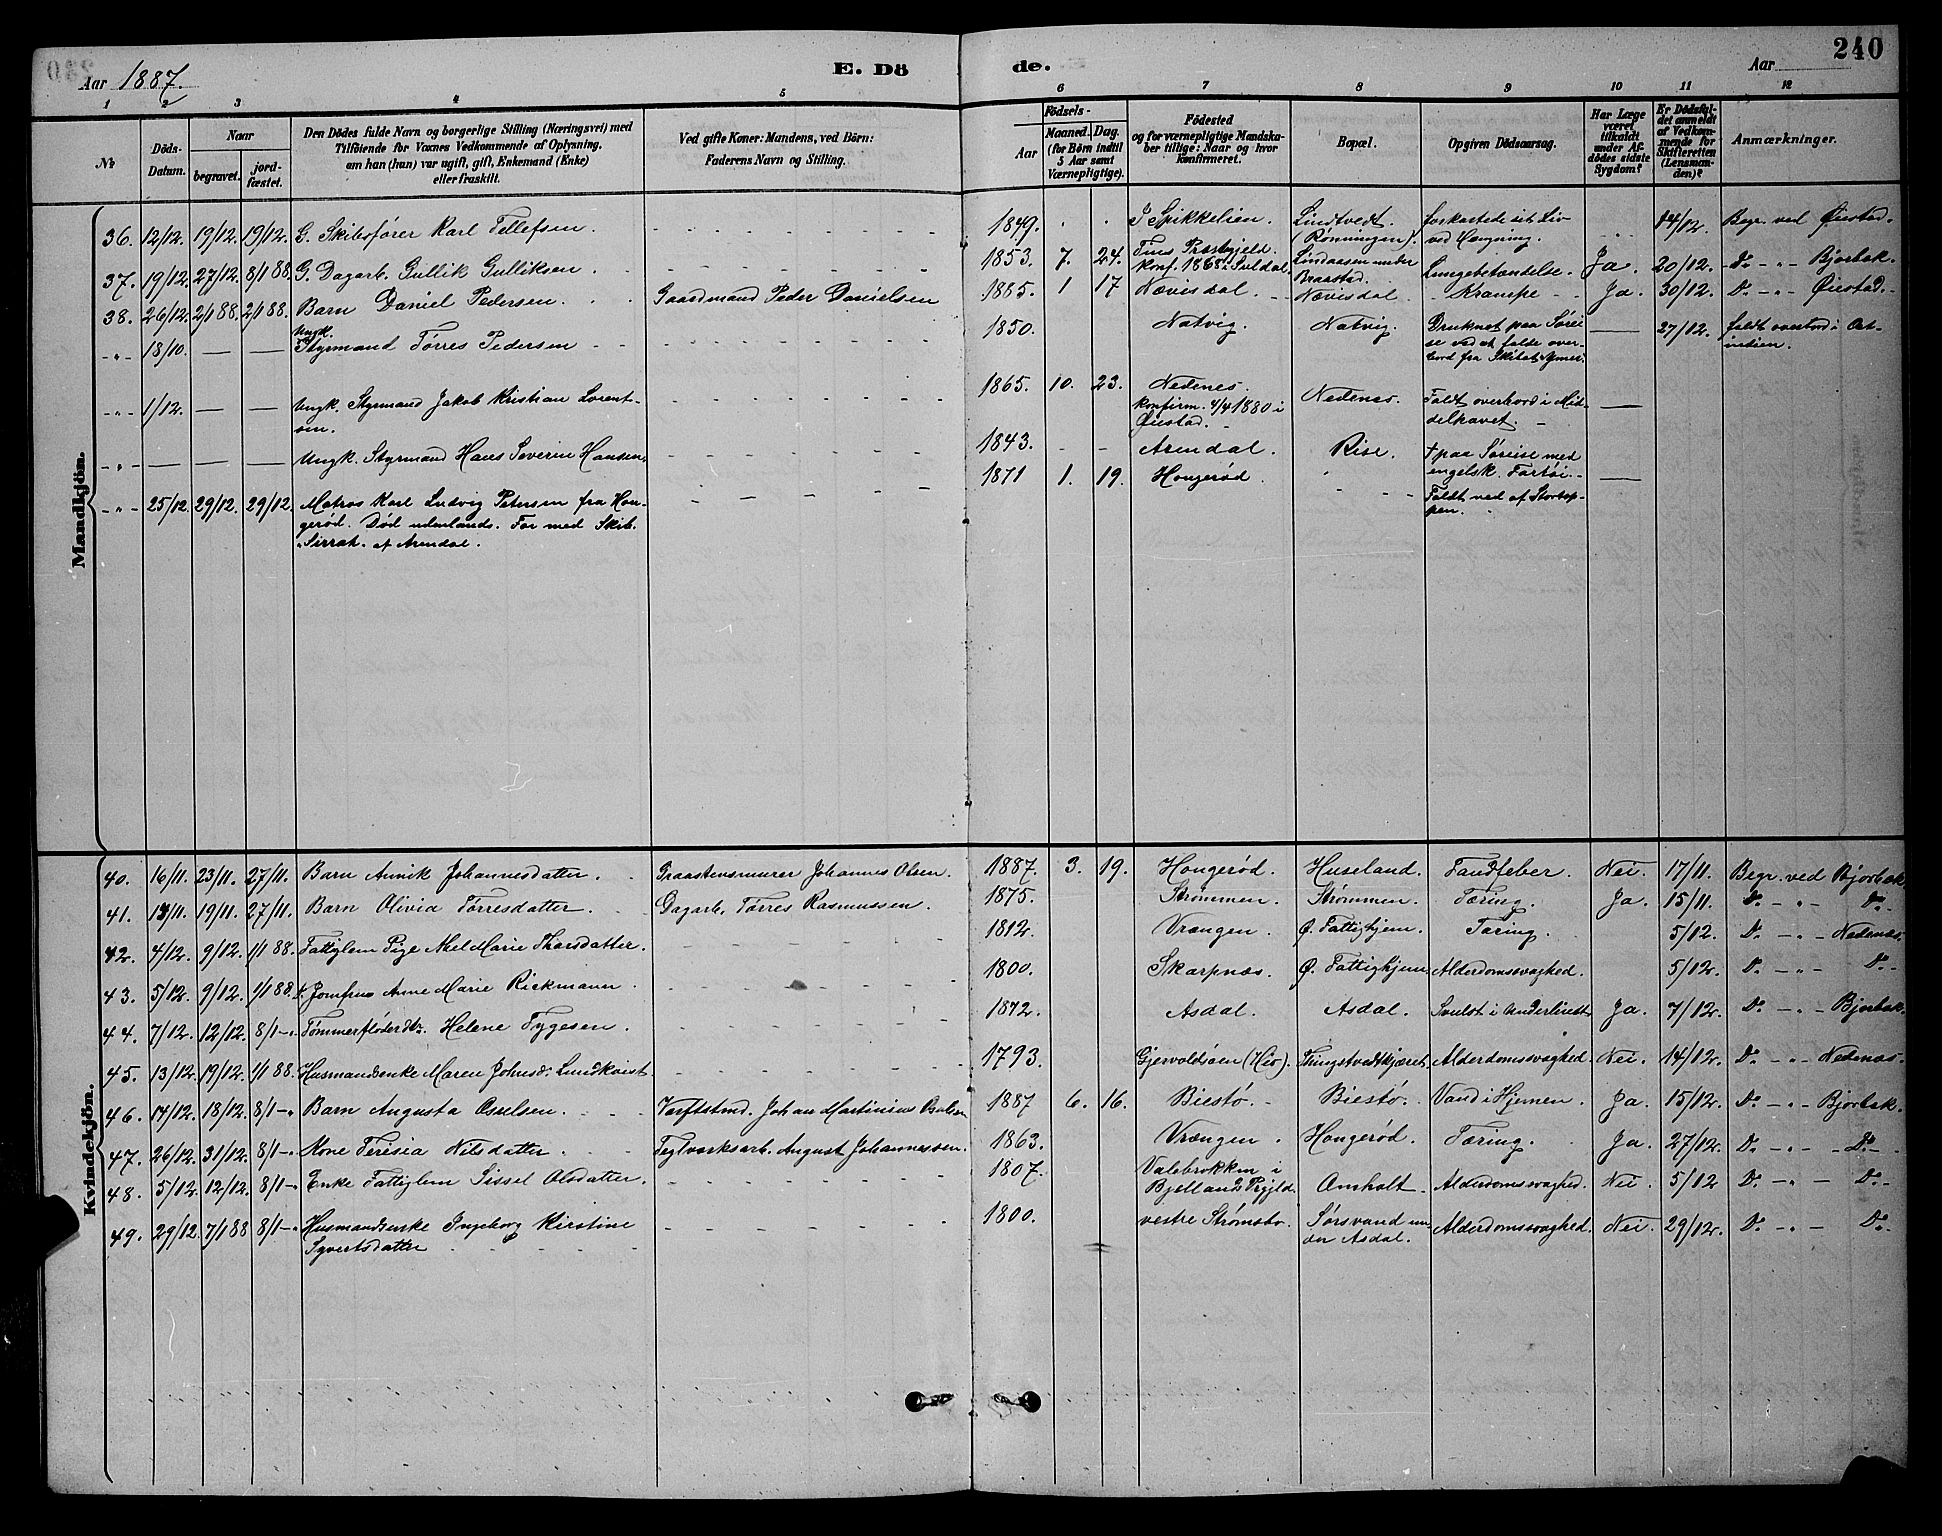 Aar 1887.
E. Dö
de.
240
Aar
1 2 3 4 5 6 7 8 9 10 11 12
№
Döds-Datum.
Naar
begravet.
jord-fæstet.
Den Dödes fulde Navn og borgerlige Stilling (Næringsvei) med
Tilföiende for Voxnes Vedkommende af Oplysning,
om han (hun) var ugift, gift, Enkemand (Enke)
eller fraskilt.
Ved gifte Koner: Mandens, ved Börn:
Faderens Navn og Stilling.
Födsels-
Aar
Maaned. Dag.
(for Börn indtil
5 Aar samt
Værnepligtige).
Födested
og for værnepligtige Mandska-
ber tillige: Naar og hvor
konfirmeret.
Bopæl.
Opgiven Dödsaarsag.
Har Læge
været
tilkaldt
under Af-
dödes sidste
Sygdom?
Er Dödsfal-
det anmeldt
af Vedkom-
mende for
Skifteretten
(Lensman-
den)?
Anmærkninger.
Mandkjön.
36. 12/12. 19/12. 19/12. G. Skibsfører Karl Tellefsen. 1849. Spikkelien. Lindtvedt (Rønningen). forkortede sit Liv ved Hængning. 14/12. Begr. ved Øiestad.
37. 19/12. 27/12. 8/1 88. G. Dagarb. Gullik Gulliksen. 1853. 7. 24. konf. 1868 i Lindaasen under Braastad. Lungebetændelse. Ja. 20/12. Do - " - Bjorbæk.
38. 26/12. 2/1 88. 2/1 88. Barn Daniel Pedersen. Gaardmand Peder Danielsen 1865. 1 17 Nævisdal. Nævisdal. Krampe Ja. 30/12. Do - " - Øiestad.
-"- 18/10. — — Ungk. Styrmand Tørres Pedersen 1850. Natvig. Natvig. Druknet paa Sørei-
se ved at falde over-
bord fra Skibet Ymer. — 27/12. faldt overbord i Ost-
indien.
-"- 1/12. — — Ungk. Styrmand Jakob Kristian Lorent-
sen. 1865. 10. 23. Nedenes.
konfirm. 4/4 1880 i
Øiestad. Nedenes. Faldt overbord i Mid-
delhavet. —
-"- — — — Ungk. Styrmand Hans Severin Hansen. 1843. - - Arendal. Rise. † paa Søreise med
engelsk Fartøi. —
-"- 25/12. 29/12. 29/12. Matros Karl Ludvig Petersen fra Hon-
gerød. Død udenlands. For med Skib.
"Sirrah" af Arendal. 1871 1. 19. Hongerød. Faldt ned af Stortop-
pen.
Kvindekjön.
40. 16/11. 23/11. 27/11. Barn Annik Johannesdatter. Graastensmurer Johannes Olsen. 1887. 3. 19. Hongerød. Huseland. Tandfeber. Nei. 17/11. Begr. ved Bjorbæk.
41. 13/11. 19/11. 27/11. Barn Olivia Tørresdatter. Dagarb. Tørres Rasmussen. 1875. Strømmen. Strømmen. Tæring. Ja. 15/11. Do - " - Do -
42. 4/12. 9/12. 1/1 88. Fattiglem Pige Marie Tharsdatter. 1812. Vrengen. Ø. Fattighjem. Tæring. 5/12. Do - " - Nedenæs.
43. 5/12. 9/12. 1/1 88. Jomfru Anne Marie Rickmann. 1800. Skarpnæs. Ø. Fattighjem Alderdomssvaghed. 5/12. Do - " - Do -
44. 7/12. 12/12. 8/1 - " Tømmerfløderdtr. Helene Tygesen. 1872. Asdal. Asdal. Svulst i Underlivet Ja. 7/12. Do - " - Bjorbæk.
45. 13/12. 19/12. 1/1 88. Husmandsenke Maren Johnsd. Lundkvist. 1793. Gjervoldsøen (Hiö). Tingstvedtkjæret. Alderdomssvaghed. Nei. 14/12. Do - " - Nedenæs.
46. 14/12. 18/12. 8/1 - " Barn Augusta Osulsen. Verftstmd. Johan Martinius Osulsen 1887 6. 16. Biestø. Biestø. Vand i Hjernen. Ja. 15/12. Do - " - Bjorbæk.
47. 26/12. 31/12. 8/1 - " Kone Teresia Nilsdatter. Teglværksarb. August Johannessen. 1863. Vrængen. Hongerød. Tæring. Ja. 27/12. Do - " - Do -
48. 5/12. 12/12. 8/1 - " Enke Fattiglem Sissel Olsdatter. 1807. Valebrokken i
Bjelland Prgjld. Omholt. Alderdomssvaghed. Nei. 5/12 Do - " - Do -
49. 29/12. 7/1 88 8/1 - " Husmandsenke Ingeborg Kirstine
Syvertsdatter 1800. vestre Strømsbo. Sørsvand un-
der Asdal. Alderdomssvaghed. Nei. 29/12. Do - " - Do -